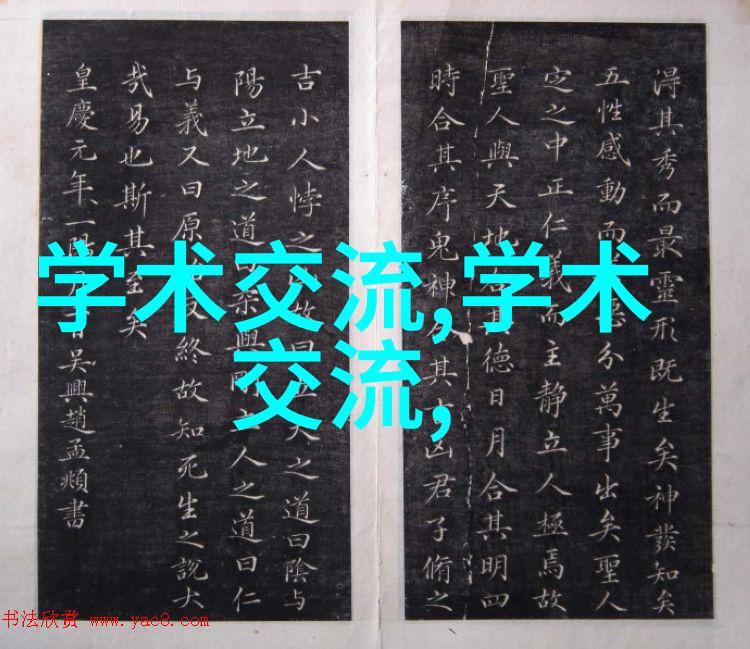 淂其秀而最靈形既生矣神發知矣
五性感動而惡分萬事出矣聖人
定之中正仁義而主靜立人極焉故
聖人與天地合其德日月合其明四
時合其序鬼神合其凶君子脩之
吉小人悖之故曰立天之道曰陰与
陽立地之道曰柔與剛人之道曰仁
与義又曰原反終故知死生之說大
哉易也斯其至矣
皇慶元年一陽月吳興趙孟頫書
学术交流,学术
交流,
书法欣赏 www.yac8.com